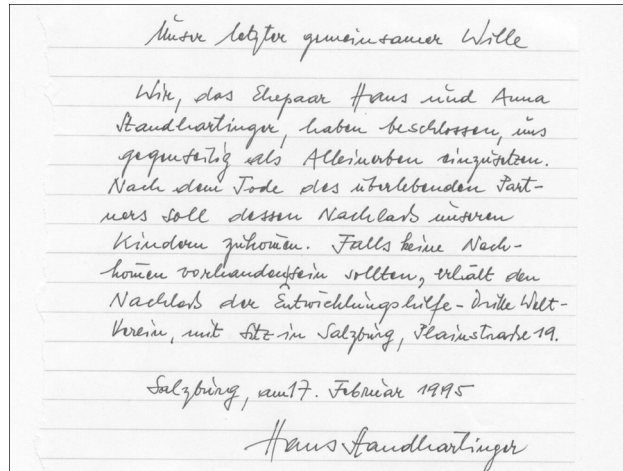 Unser letzter gemeinsamer Wille
Wir, das Ehepaar Hans und Anna
Standhartinger, haben beschlossen, uns
gegenseitig als Alleinerben einzusetzen.
Nach dem Tode des überlebenden Part-
ners soll dessen Nachlaß unseren
Kindern zukom̅en. Falls keine Nach-
kom̅en vorhanden sein sollten, erhält den
Nachlaß der Entwicklungshilfe-Dritte Welt-
Verein, mit Sitz in Salzburg, Plainstraße 19.
Salzburg, am 17. Februar 1995
Hans Standhartinger